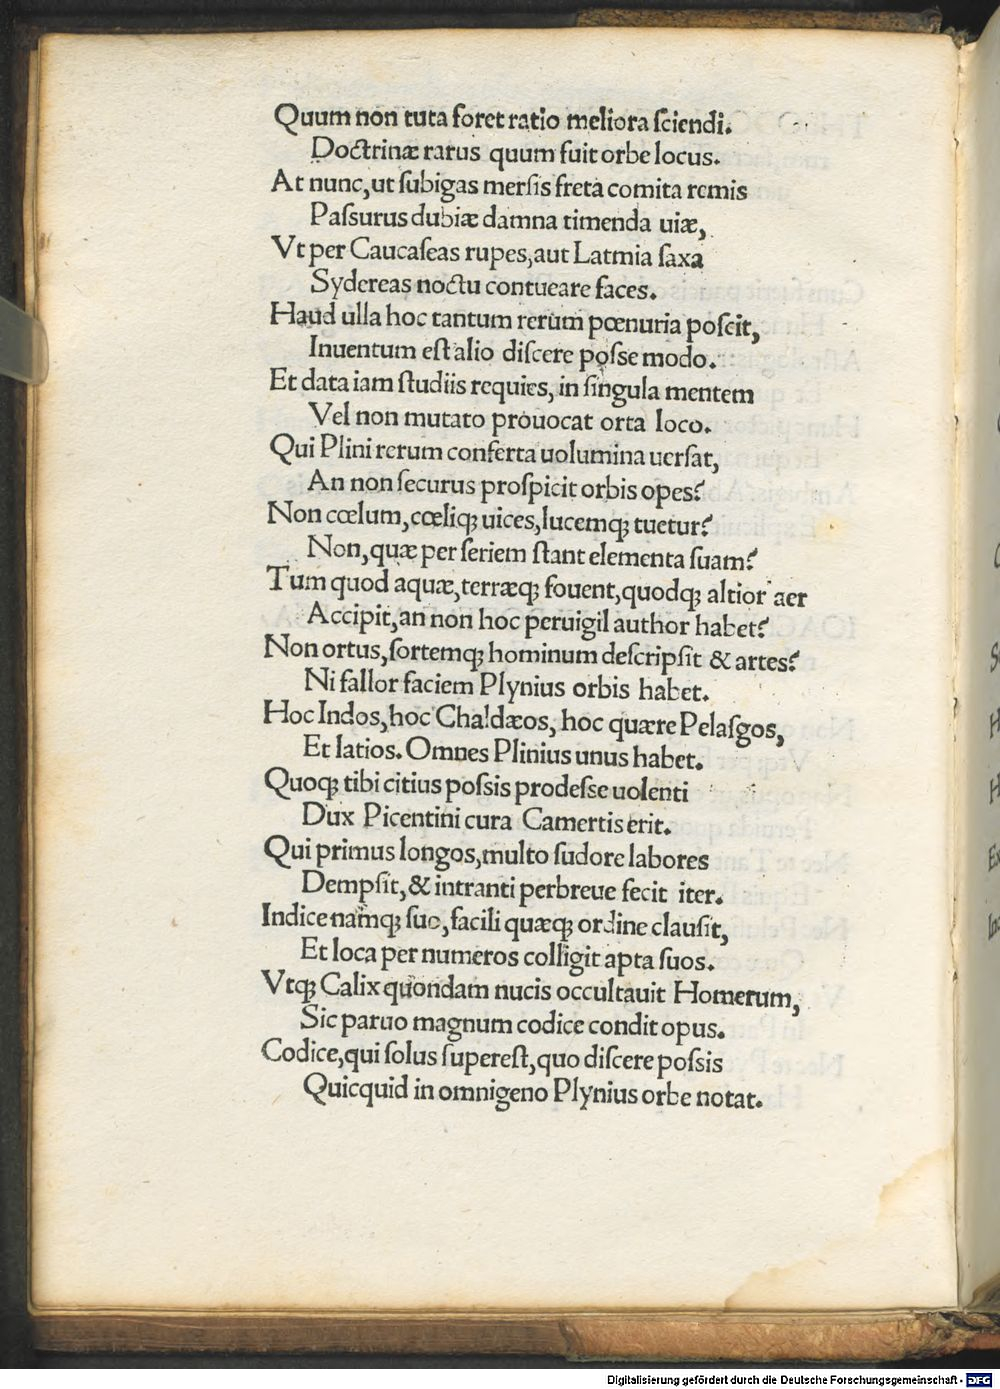 Quum non tuta foret ratio meliora ſciendi.
Doctrinæ rarus quum fuit orbe locus.
At nunc,ut ſubigas merſis freta comita remis
Paſſurus dubiæ damna timenda uiæ,
Vt per Caucaſeas rupes,aut Latmia ſaxa
Sydereas noctu contueare faces.
Haud ulla hoc tantum rerum pœnuria poſcit,
Inuentum eſt alio diſcere poſſe modo.
Et data iam ſtudiis requies, in ſingula mentem
Vel non mutato prouocat orta loco.
Qui Plini rerum conferta uolumina uerſat,
An non ſecurus proſpicit orbis opes?
Non cœlum,cœliqꝫ uices,lucemqꝫ tuetur?
Non,quæ per ſeriem ſtant elementa ſuam?
Tum quod aquæ,terræqꝫ fouent,quodqꝫ altior aer
Accipit,an non hoc peruigil author habet?
Non ortus,ſortemqꝫ hominum deſcripſit & artes?
Ni fallor faciem Plynius orbis habet.
Hoc Indos,hoc Chaldæos, hoc quære Pelaſgos,
Et latios. Omnes Plinius unus habet.
Quoqꝫ tibi citius poſſis prodeſſe uolenti
Dux Picentini cura Camertis erit.
Qui primus longos,multo ſudore labores
Dempſit,& intranti perbreue fecit iter.
Indice namqꝫ ſuo,facili quæqꝫ ordine clauſit,
Et loca per numeros colligit apta ſuos.
Vtqꝫ Calix quondam nucis occultauit Homerum,
Sic paruo magnum codice condit opus.
Codice,qui ſolus ſupereſt,quo diſcere poſſis
Quicquid in omnigeno Plynius orbe notat.
Digitalisierung gefördert durch die Deutsche Forschungsgemeinschaft - DFG